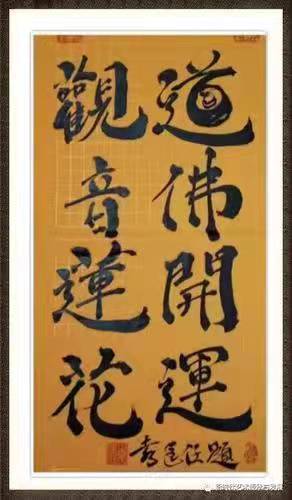 道佛開運
觀音蓮花